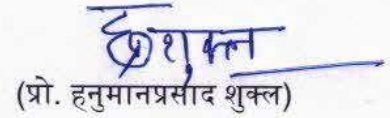 शुक्ल
(प्रो. हनुमानप्रसाद शुक्ल)